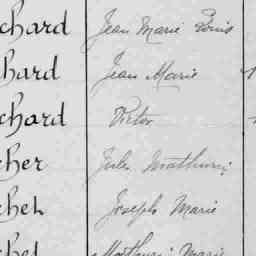 chard Jean Marie Louis
hard Jean Marie
chard Victor
cher Jules Mathurin
chet Joseph Marie
chet Mathurin Marie